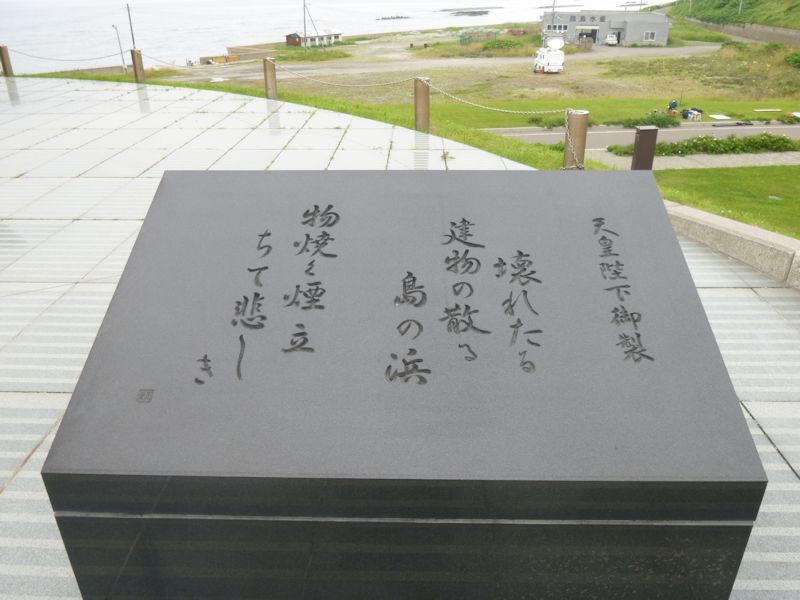 天皇陛下御製
壊れたる
建物の散る
島の浜
物焼く煙立
ちて悲し
き